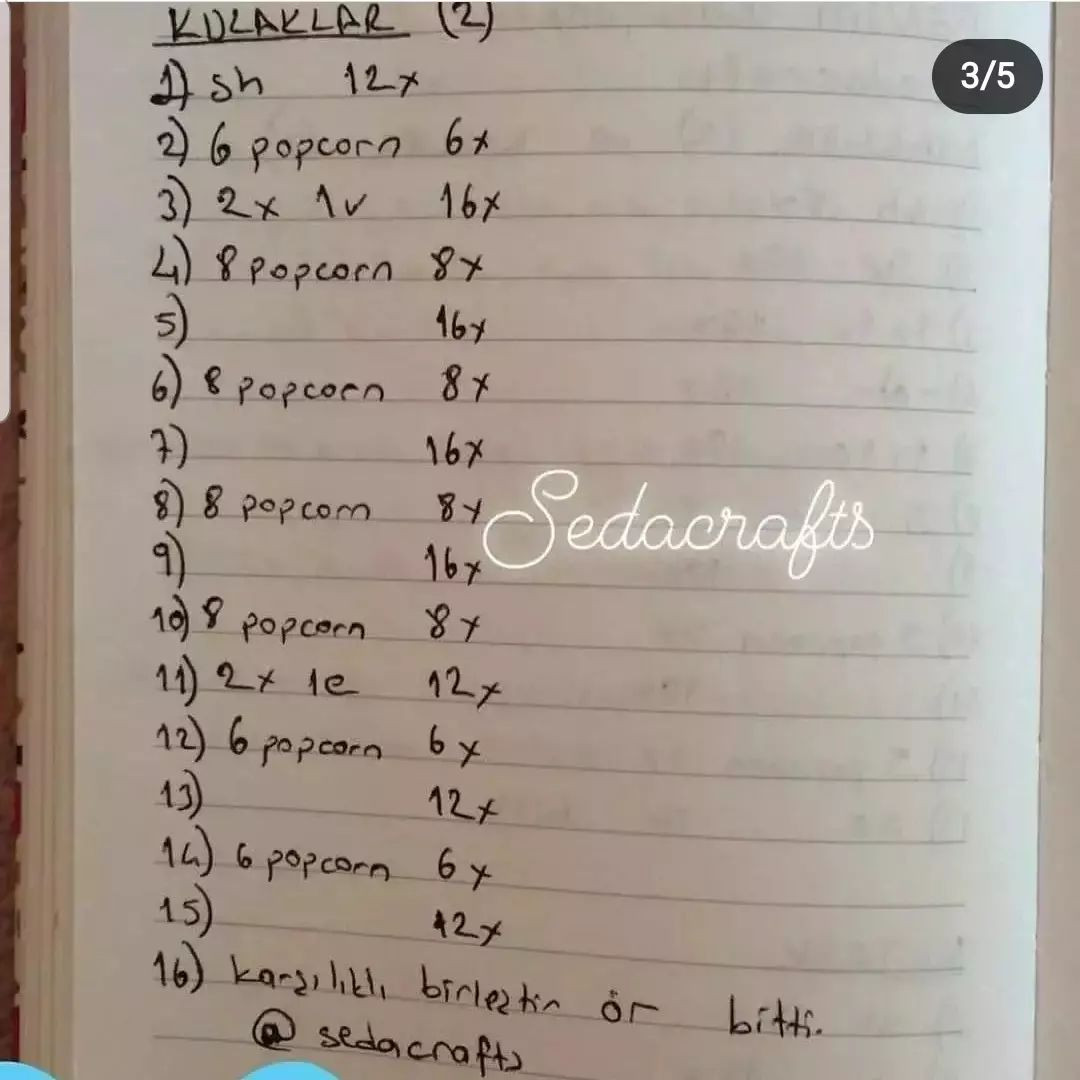 KULAKLAR (2)
3/5
1) sh 12x
2) 6 popcorn 6x
3) 2x 1v 16x
4) 8 popcorn 8x
5) 16x
6) 8 popcorn 8x
7) 16x
8) 8 popcorn 8x
Sedacrafts
9) 16x
10) 8 popcorn 8x
11) 2x 1e 12x
12) 6 popcorn 6x
13) 12x
14) 6 popcorn 6x
15) 12x
16) karşılıklı birleştir ör bitti.
@ sedacrafts